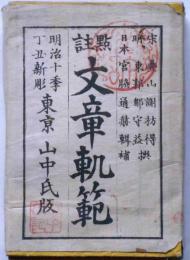 宋 疊山謝枋得撰
明 東郭鄒守益
日本 宮脇通赫輯補
點註 文章軌範
明治十季
丁丑新彫
東京 山中氏版